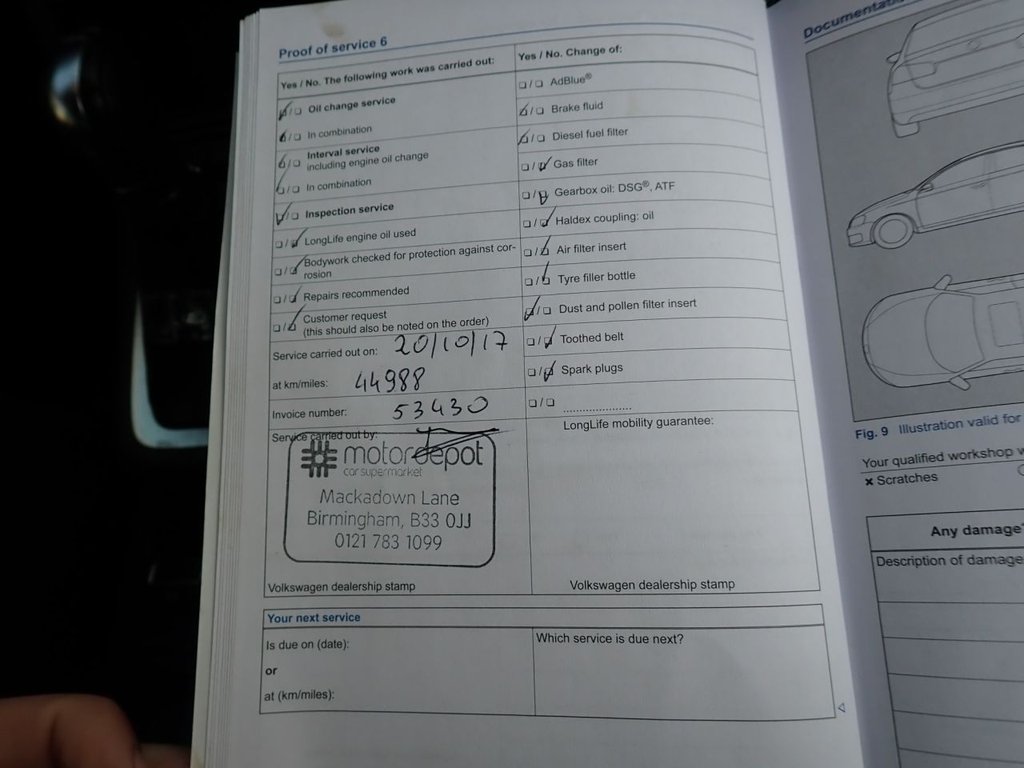 Proof of service 6
Yes / No. The following work was carried out:
Oil change service
In combination
Interval service
including engine oil change
In combination
Inspection service
LongLife engine oil used
Bodywork checked for protection against cor-
rosion
Repairs recommended
Customer request
(this should also be noted on the order)
Service carried out on: 20/10/17
at km/miles: 44988
Invoice number: 53430
Service carried out by:
motordepot
car supermarket
Mackadown Lane
Birmingham, B33 0JJ
0121 783 1099
Volkswagen dealership stamp
Yes / No. Change of:
AdBlue®
Brake fluid
Diesel fuel filter
Gas filter
Gearbox oil: DSG®, ATF
Haldex coupling: oil
Air filter insert
Tyre filler bottle
Dust and pollen filter insert
Toothed belt
Spark plugs
LongLife mobility guarantee:
Volkswagen dealership stamp
Your next service
Is due on (date):
or
at (km/miles):
Which service is due next?
Fig. 9 Illustration valid for
Your qualified workshop
x Scratches
Any damage
Description of damage